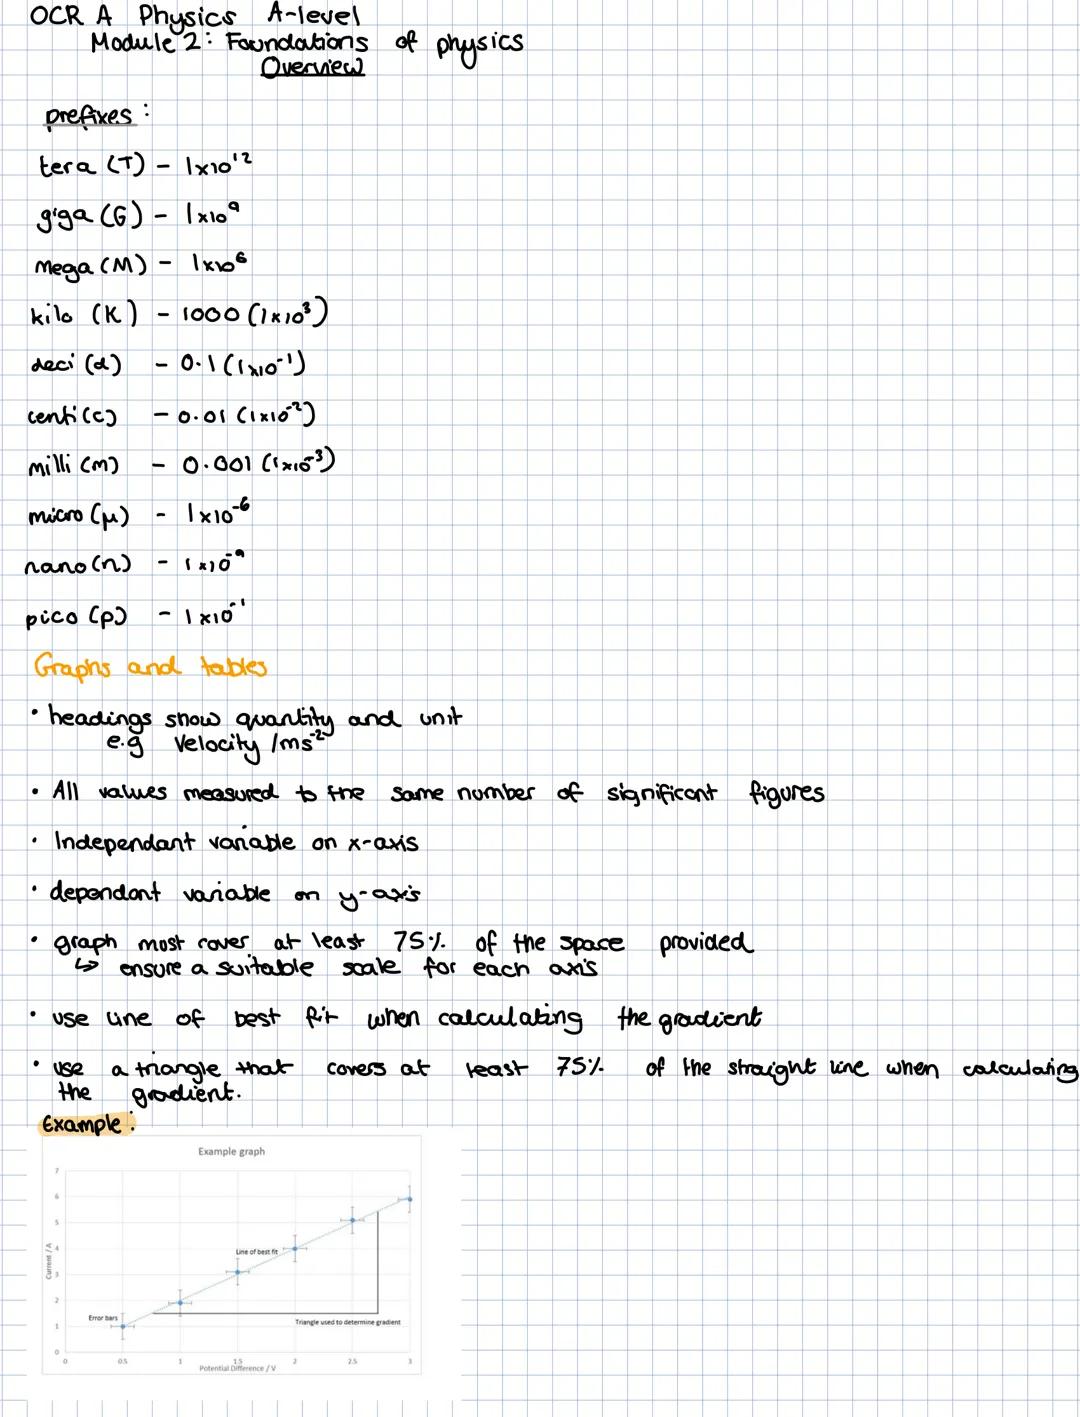 OCR A Physics A-level
Module 2: Foundations of physics
Overview
prefixes:
tera (T) - 1x10¹²
giga (G) - 1x10⁹
Mega (M) - 1x10⁶
kilo (K) - 1000 (1x10³)
deci (d) - 0.1 (1x10⁻¹)
centi (c) - 0.01 (1x10⁻²)
milli (m) - 0.001 (1x10⁻³)
micro (μ) - 1x10⁻⁶
nano (n) - 1x10⁻⁹
pico (p) - 1x10⁻¹
Graphs and tables
• headings show quantity and unit
e.g Velocity /ms⁻²
• All values measured to the same number of significant figures
• Independant variable on x-axis
• dependant variable on y-axis
• graph most cover at least 75% of the space provided
↳ ensure a suitable scale for each axis
• use line of best fit when calculating the gradient
• use a triangle that covers at least 75% of the straight line when calculating
the gradient.
Example:
Example graph
7
6
5
4
3
2
1
0
Current / A
Line of best fit
Error bars
Triangle used to determine gradient
0 0.5 1 1.5 2 2.5 3
Potential Difference / V